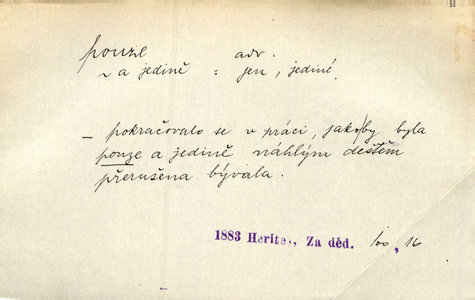 pouze adv.
~ a jedině = jen, jedině.
— pokračovalo se v práci, jakoby byla
pouze a jedině náhlým deštěm
přerušena bývala.
1883 Herites, Za děd. 16